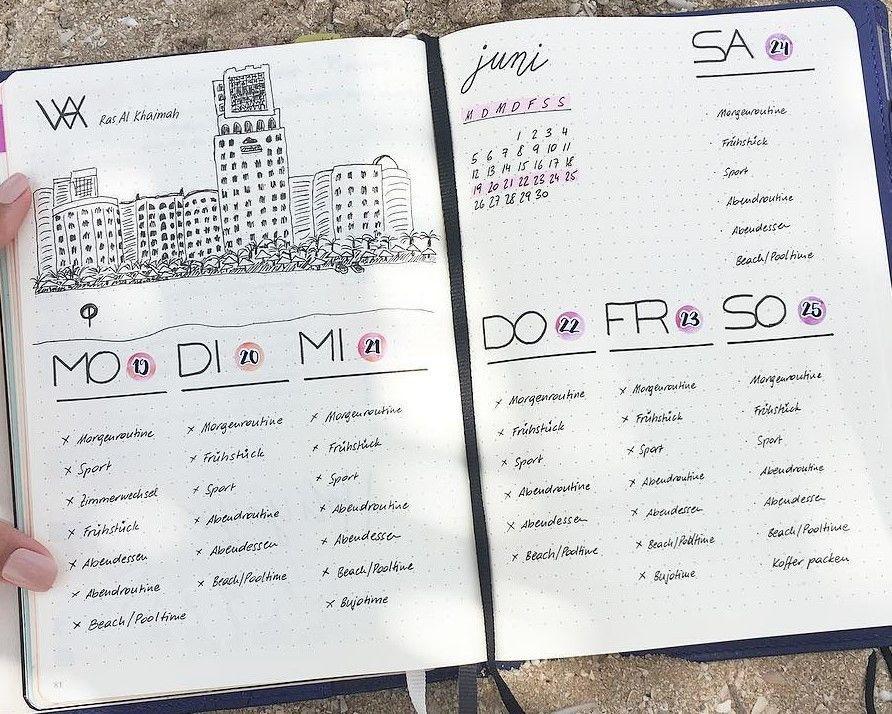 WA Ras Al Khaimah
MO 19
× Morgenroutine
× Sport
× Zimmerwechsel
× Frühstück
× Abendessen
× Abendroutine
× Beach/Pooltime
DI 20
× Morgenroutine
× Frühstück
× Sport
× Abendroutine
× Abendessen
× Beach/Pooltime
MI 21
× Morgenroutine
× Frühstück
× Sport
× Abendroutine
× Abendessen
× Beach/Pooltime
× Bujotime
81
juni
M D M D F S S
1 2 3 4
5 6 7 8 9 10 11
12 13 14 15 16 17 18
19 20 21 22 23 24 25
26 27 28 29 30
SA 24
· Morgenroutine
· Frühstück
· Sport
· Abendroutine
· Abendessen
· Beach/Pooltime
DO 22
× Morgenroutine
× Frühstück
× Sport
× Abendroutine
× Abendessen
× Beach/Pooltime
FR 23
× Morgenroutine
× Frühstück
× Sport
× Abendroutine
× Abendessen
× Beach/Pooltime
× Bujotime
SO 25
· Morgenroutine
· Frühstück
· Sport
· Abendroutine
· Abendessen
· Beach/Pooltime
· Koffer packen